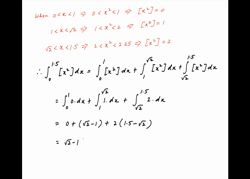 When 0<x<1 ⇒ 0<x²<1 ⇒ [x²]=0
1<x<√2 ⇒ 1<x²<2 ⇒ [x²]=1
√2<x<1.5 ⇒ 2<x²<2.25 ⇒ [x²]=2
∴ ∫₀^1.5 [x²]dx = ∫₀^1 [x²]dx + ∫₁^√2 [x²]dx + ∫_√2^1.5 [x²]dx
= ∫₀^1 0.dx + ∫₁^√2 1.dx + ∫_√2^1.5 2.dx
= 0 + (√2-1) + 2(1.5-√2)
= √2-1